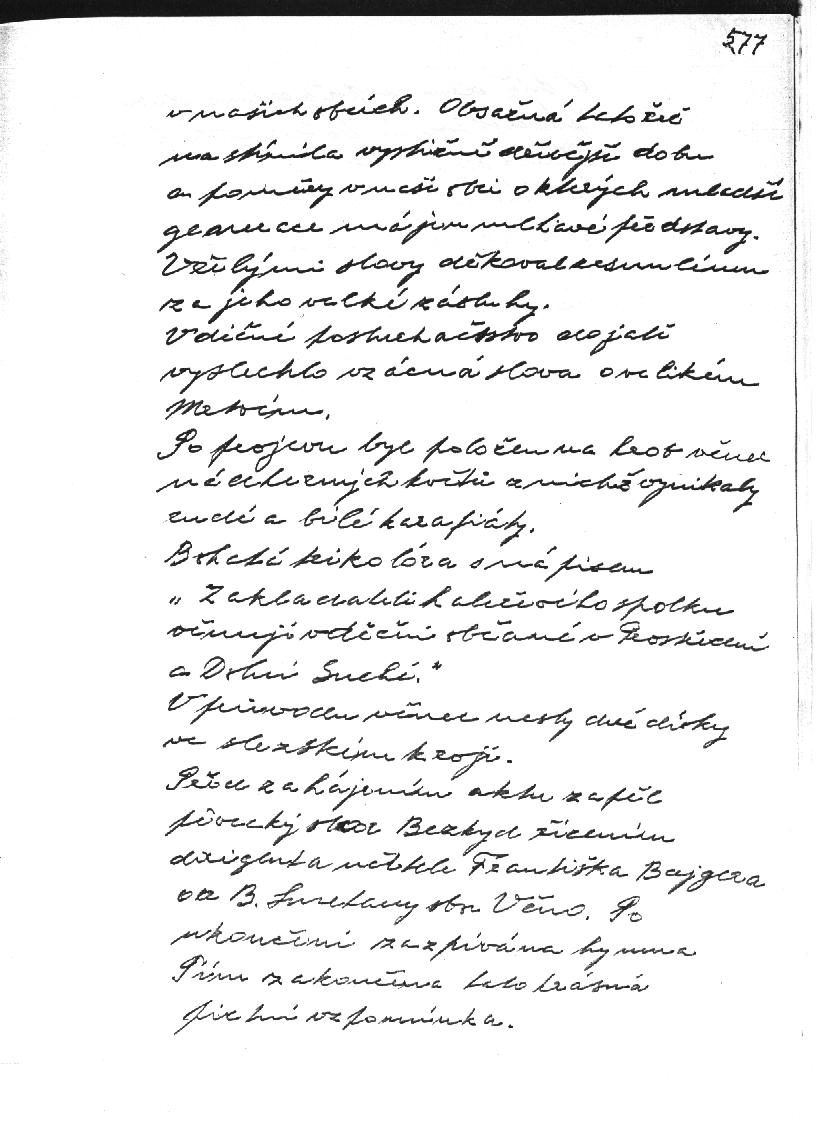 577
v našich obcích. Obsažná tato řeč
nastínila výstižně dřívější dobu
a poměry v naší obci o kterých mladší
generace má jen mlhavé představy.
Vřelými slovy děkoval zesnulému
za jeho velké zásluhy.
Vděčné posluchačstvo dojatě
vyslechlo vzácná slova o velikém
Po projevu byl položen na hrob věnec
nádherných květů z nichž vynikaly
rudé a bílé karafiáty.
Bohatá trikolóra s nápisem
„ Zakladateli haličího spolku
věnují vděční občané v Prostřední
a Dolní Suché."
V průvodu věnec nesly dvě dívky
ve slezském kroji.
Před zahájením aktu zapěl
pěvecký sbor Bezkyd řízením
dirigenta učitele Františka Bajgera
od B. Smetany sbor Věno. Po
ukončení zazpívána hymna
Tím zakončena tato krásná
pietní vzpomínka.